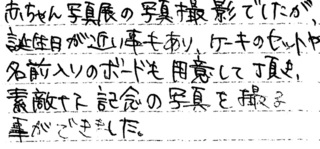 赤ちゃん写真展の写真撮影でしたが、
誕生日が近い事もあり、ケーキのセットや
名前入りのボードも用意して頂き、
素敵な記念の写真を撮る
事ができました。